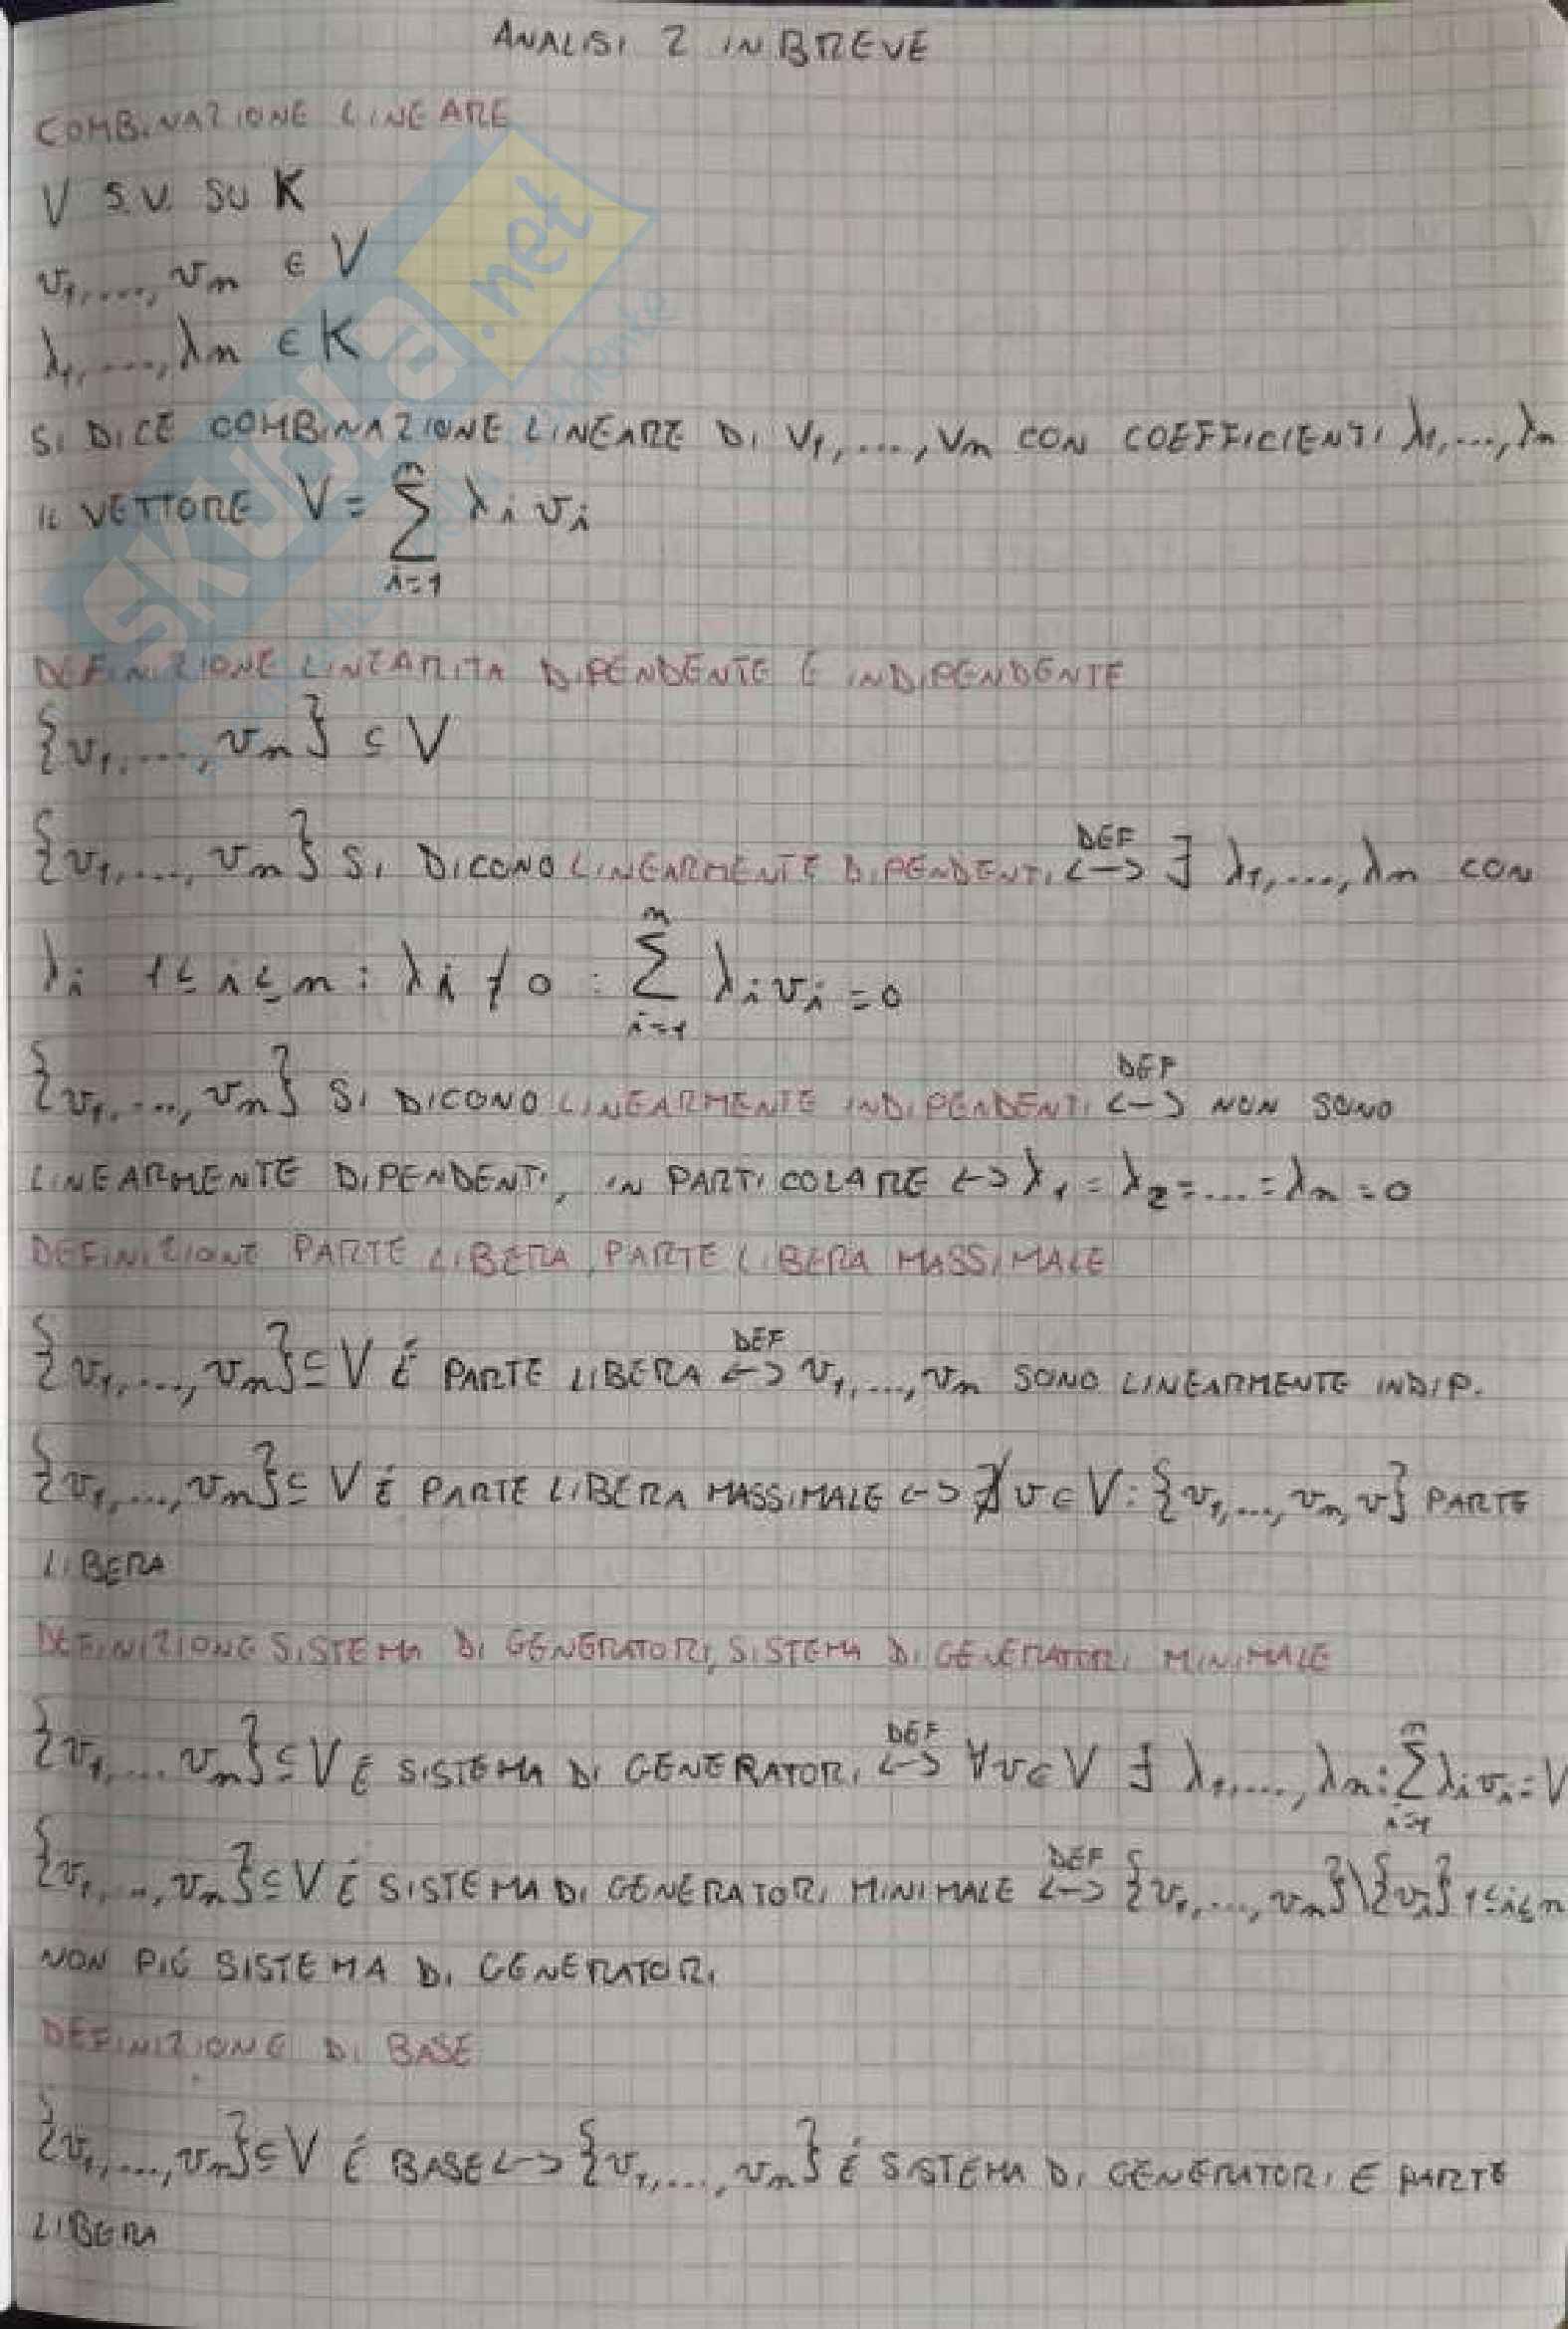 ANALISI 2 IN BREVE
COMBINAZIONE LINEARE
V S.V. SU K
v₁,...,vₙ ∈ V
λ₁,...,λₙ ∈ K
SI DICE COMBINAZIONE LINEARE DI V₁,...,Vₙ CON COEFFICIENTI λ₁,...,λₙ
IL VETTORE V = ∑ⁿᵢ₌₁ λᵢ vᵢ
DEFINIZIONE LINEARITÀ DIPENDENTE E INDIPENDENTE
{v₁,...,vₙ} ⊆ V
{v₁,...,vₙ} SI DICONO LINEARMENTE DIPENDENTI <-DEF-> ∃ λ₁,...,λₙ CON
λᵢ 1≤i≤n : λᵢ ≠ 0 : ∑ⁿᵢ₌₁ λᵢvᵢ = 0
{v₁,...,vₙ} SI DICONO LINEARMENTE INDIPENDENTI <-DEF-> NON SONO
LINEARMENTE DIPENDENTI, IN PARTICOLARE <-> λ₁ = λ₂ = ... = λₙ = 0
DEFINIZIONE PARTE LIBERA, PARTE LIBERA MASSIMALE
{v₁,...,vₙ} ⊆ V É PARTE LIBERA <-DEF-> v₁,...,vₙ SONO LINEARMENTE INDIP.
{v₁,...,vₙ} ⊆ V É PARTE LIBERA MASSIMALE <-> ∄ v ∈ V : {v₁,...,vₙ,v} PARTE
LIBERA
DEFINIZIONE SISTEMA DI GENERATORI, SISTEMA DI GENERATORI MINIMALE
{v₁,... vₙ} ⊆ V É SISTEMA DI GENERATORI <-DEF-> ∀v∈V ∃ λ₁,...,λₙ : ∑ⁿᵢ₌₁ λᵢvᵢ = V
{v₁,..,vₙ} ⊆ V É SISTEMA DI GENERATORI MINIMALE <-DEF-> {v₁,...,vₙ}\{vᵢ} 1≤i≤n
NON PIÚ SISTEMA DI GENERATORI
DEFINIZIONE DI BASE
{v₁,...,vₙ} ⊆ V É BASE <-> {v₁,...,vₙ} É SISTEMA DI GENERATORI E PARTE
LIBERA
SKUOLA.net